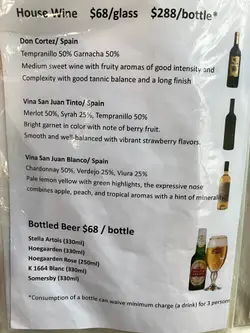 House Wine $68/glass $288/bottle*
Don Cortez/ Spain
Tempranillo 50% Garnacha 50%
Medium sweet wine with fruity aromas of good intensity and
Complexity with good tannic balance and a long finish
Vina San Juan Tinto/ Spain
Merlot 50%, Syrah 25%, Tempranillo 50%
Bright garnet in color with note of berry fruit.
Smooth and well-balanced with vibrant strawberry flavors.
Vina San Juan Blanco/ Spain
Chardonnay 50%, Verdejo 25%, Viura 25%
Pale lemon yellow with green highlights, the expressive nose
combines apple, peach, and tropical aromas with a hint of minerality
Bottled Beer $68 / bottle
Stella Artois (330ml)
Hoegaarden (330ml)
Hoegaarden Rose (250ml)
K 1664 Blanc (330ml)
Somersby (330ml)
*Consumption of a bottle can waive minimum charge (a drink) for 3 persons